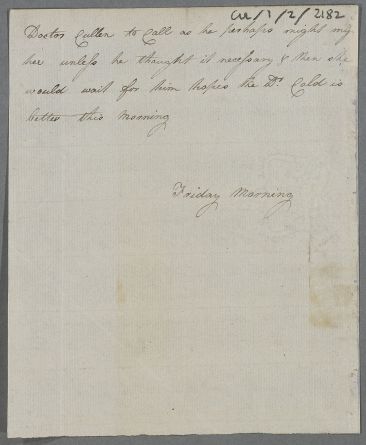 CUL/1/2/2182
Doctor Cullen to Call as he perhaps might mis
her unless he thought it necessary & then she
would wait for him hopes the Dr. Cold is
better this Morning
Friday Morning